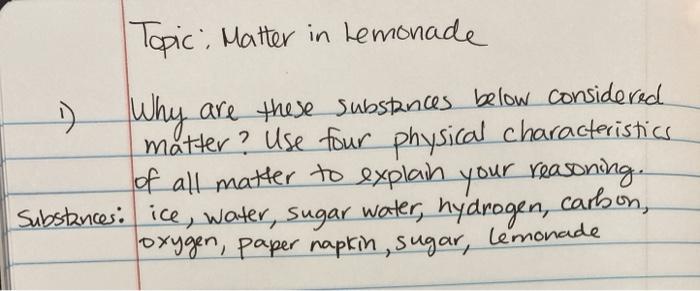 Topic: Matter in Lemonade
1) Why are these substances below considered
matter? Use four physical characteristics
of all matter to explain your reasoning.
Substances: ice, water, sugar water, hydrogen, carbon,
oxygen, paper napkin, sugar, lemonade